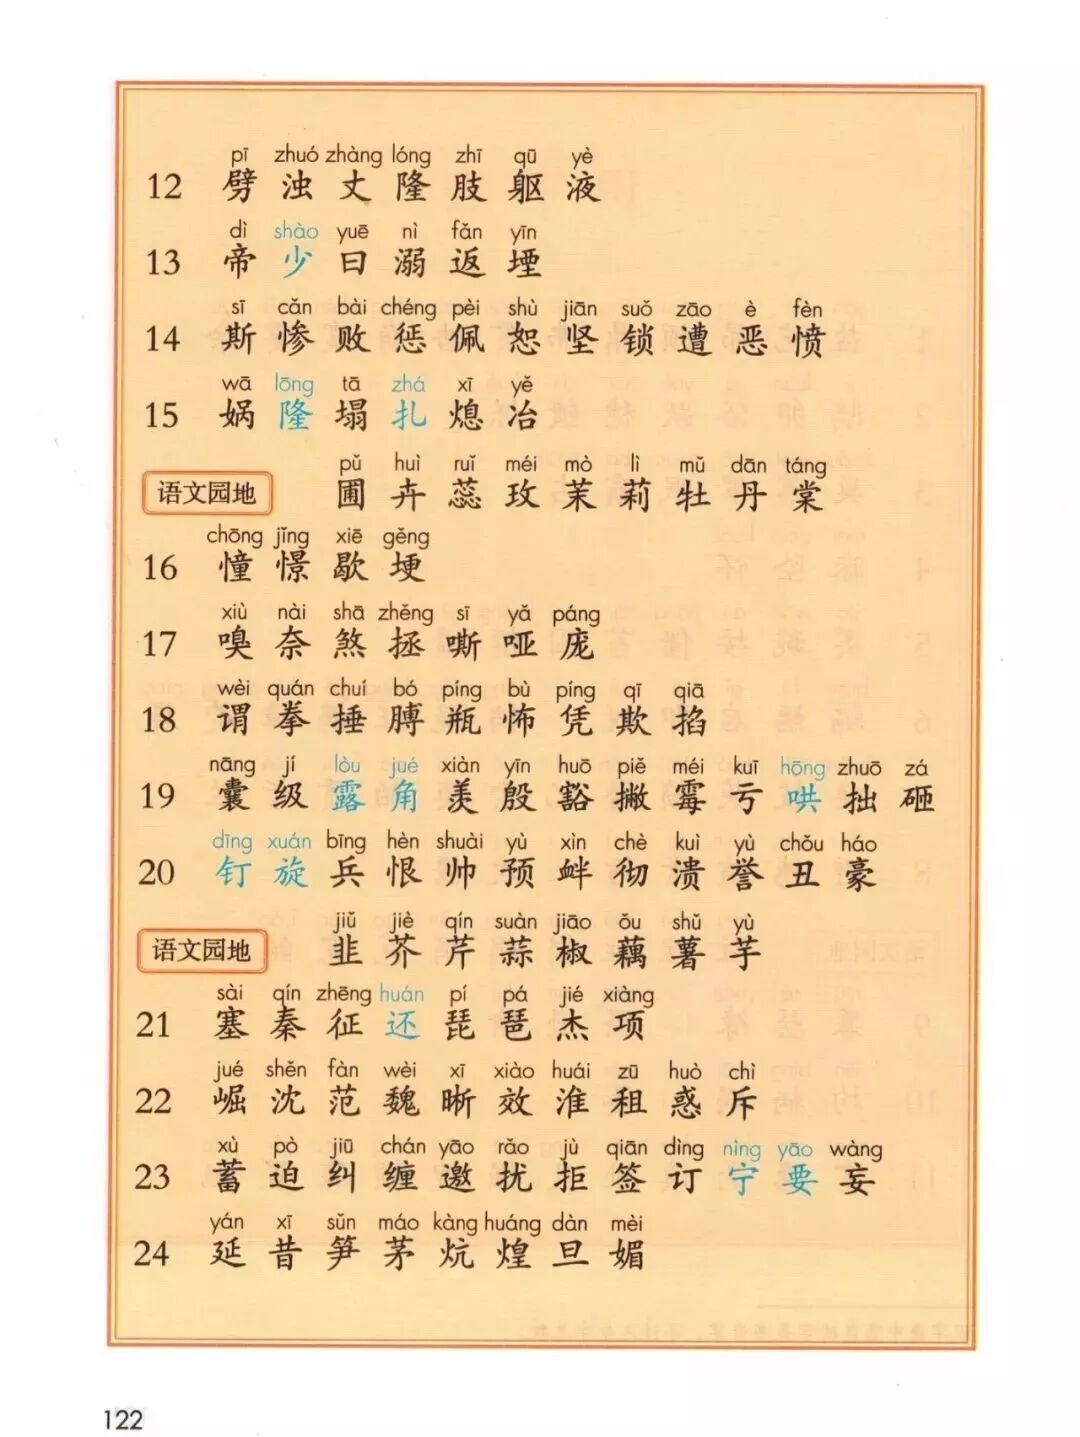 pī zhuó zhàng lóng zhī qū yè
12 劈 浊 丈 隆 肢 躯 液
dì shào yuē nì fǎn yīn
13 帝 少 曰 溺 返 堙
sī cǎn bài chéng pèi shù jiān suǒ zāo è fèn
14 斯 惨 败 惩 佩 恕 坚 锁 遭 恶 愤
wā lōng tā zhá xī yě
15 娲 隆 塌 扎 熄 冶
pǔ huì ruǐ méi mò lì mǔ dān táng
语文园地 圃 卉 蕊 玫 茉 莉 牡 丹 棠
chōng jǐng xiē gěng
16 憧 憬 歇 埂
xiù nài shā zhěng sī yǎ páng
17 嗅 奈 煞 拯 嘶 哑 庞
wèi quán chuí bó píng bù píng qī qiā
18 谓 拳 捶 膊 瓶 怖 凭 欺 掐
nāng jí lòu jué xiàn yīn huō piě méi kuī hōng zhuō zá
19 囊 级 露 角 羡 殷 豁 撇 霉 亏 哄 拙 砸
dīng xuán bīng hèn shuài yù xìn chè kuì yù chǒu háo
20 钉 旋 兵 恨 帅 预 衅 彻 溃 誉 丑 豪
jiǔ jiè qín suàn jiāo ǒu shǔ yù
语文园地 韭 芥 芹 蒜 椒 藕 薯 芋
sài qín zhēng huán pí pá jié xiàng
21 塞 秦 征 还 琵 琶 杰 项
jué shěn fàn wèi xī xiào huái zū huò chì
22 崛 沈 范 魏 晰 效 淮 租 惑 斥
xù pò jiū chán yāo rǎo jù qiān dìng nìng yāo wàng
23 蓄 迫 纠 缠 邀 扰 拒 签 订 宁 要 妄
yán xī sǔn máo kàng huáng dàn mèi
24 延 昔 笋 茅 炕 煌 旦 媚
122